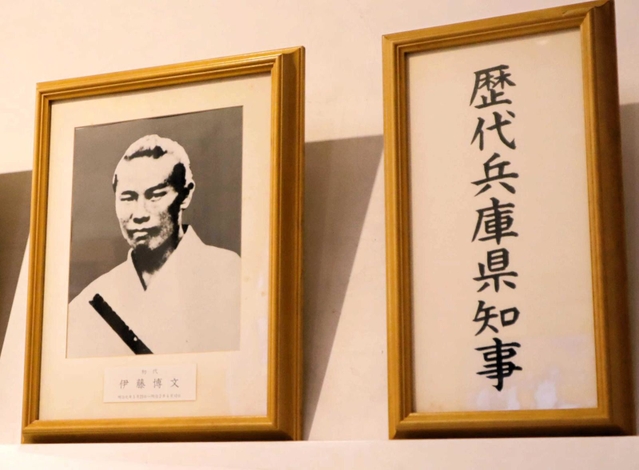 歴代兵庫県知事
初代
伊藤博文